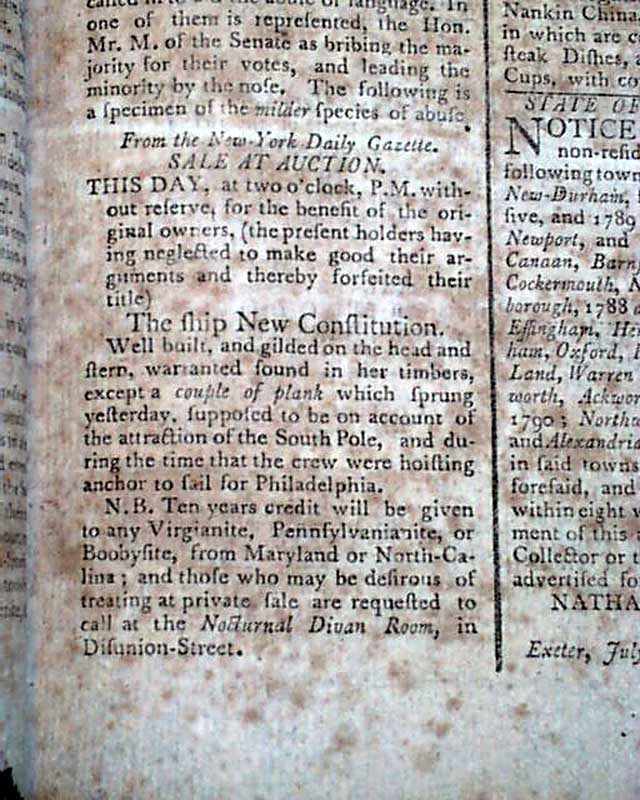 called in to aid the abuse of language. In
one of them is repreſented, the Hon.
Mr. M. of the Senate as bribing the ma-
jority for their votes, and leading the
minority by the noſe. The following is
a ſpecimen of the milder ſpecies of abuſe.
From the New-York Daily Gazette.
SALE AT AUCTION.
THIS DAY, at two o'clock, P.M. with-
out reſerve, for the benefit of the ori-
ginal owners, (the preſent holders hav-
ing neglected to make good their ar-
guments and thereby forfeited their
title)
The ſhip New Conſtitution.
Well built, and gilded on the head and
ſtern, warranted ſound in her timbers,
except a couple of plank which ſprung
yeſterday, ſuppoſed to be on account of
the attraction of the South Pole, and du-
ring the time that the crew were hoiſting
anchor to ſail for Philadelphia.
N.B. Ten years credit will be given
to any Virginite, Pennſylvanianite, or
Boobyſite, from Maryland or North-Ca-
lina; and thoſe who may be deſirous of
treating at private ſale are requeſted to
call at the Nocturnal Divan Room, in
Diſunion-Street.
Nankin China
in which are
ſteak Diſhes, a
Cups, with co
STATE OF
NOTICE
non-reſid
following town
New-Durham,
ſive, and 1789
Newport, and
Canaan, Barn
Cockermouth, N
borough, 1788
Eſſingham, He
ham, Oxford,
Land, Warren
worth, Ackwor
1790; Northw
and Alexandria
in ſaid towns
foreſaid, and
within eight w
ment of this
Collector or t
advertiſed fo
NATHA
Exeter, July